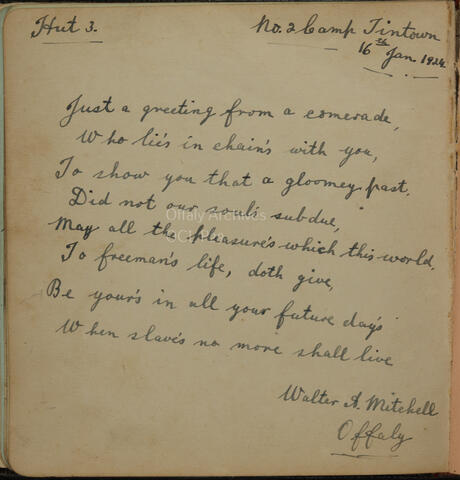 Hut 3.
No. 2 Camp Tintown
16th Jan. 1924.
Just a greeting from a comerade,
Who lie's in chain's with you,
To show you that a gloomey past,
Did not our soul's subdue,
May all the pleasure's which this world,
To freeman's life, doth give,
Be your's in all your future day's
When slave's no more shall live
Walter A. Mitchell
Offaly
Offaly Archives